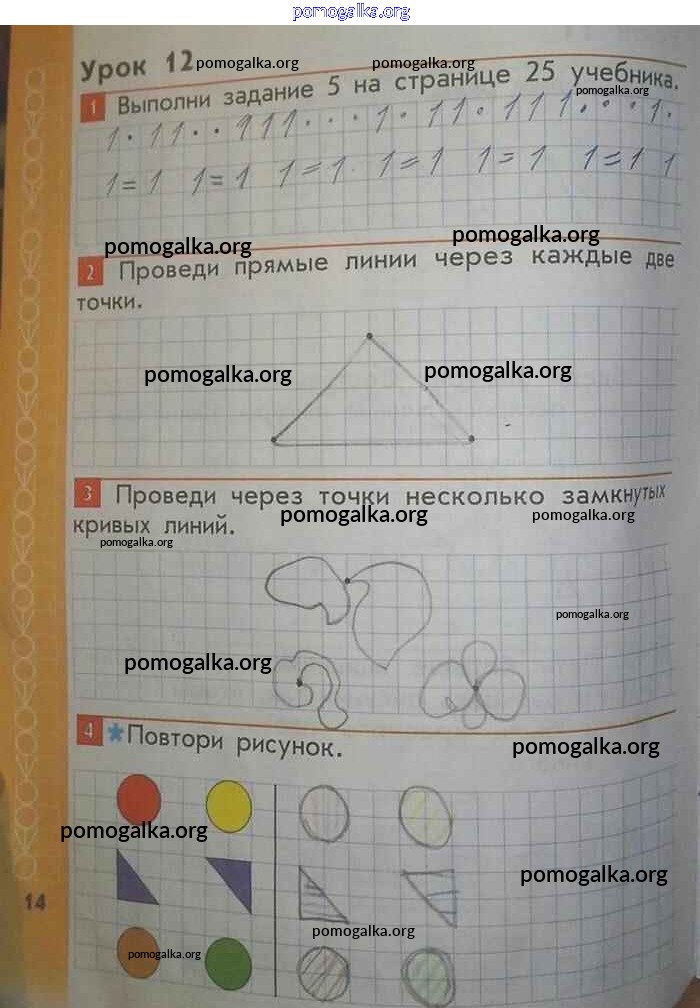 pomogalka.org
Урок 12 pomogalka.org pomogalka.org
1 Выполни задание 5 на странице 25 учебника.
pomogalka.org
1 · 1 1 · · 1 1 1 · · · 1 · 1 1 · 1 1 1 · · · 1 ·
1 = 1 1 = 1 1 = 1 1 = 1 1 = 1 1 = 1 1
pomogalka.org pomogalka.org
2 Проведи прямые линии через каждые две
точки.
pomogalka.org pomogalka.org
3 Проведи через точки несколько замкнутых
кривых линий. pomogalka.org pomogalka.org
pomogalka.org
pomogalka.org
pomogalka.org
4 *Повтори рисунок.
pomogalka.org
pomogalka.org
pomogalka.org
14
pomogalka.org
pomogalka.org